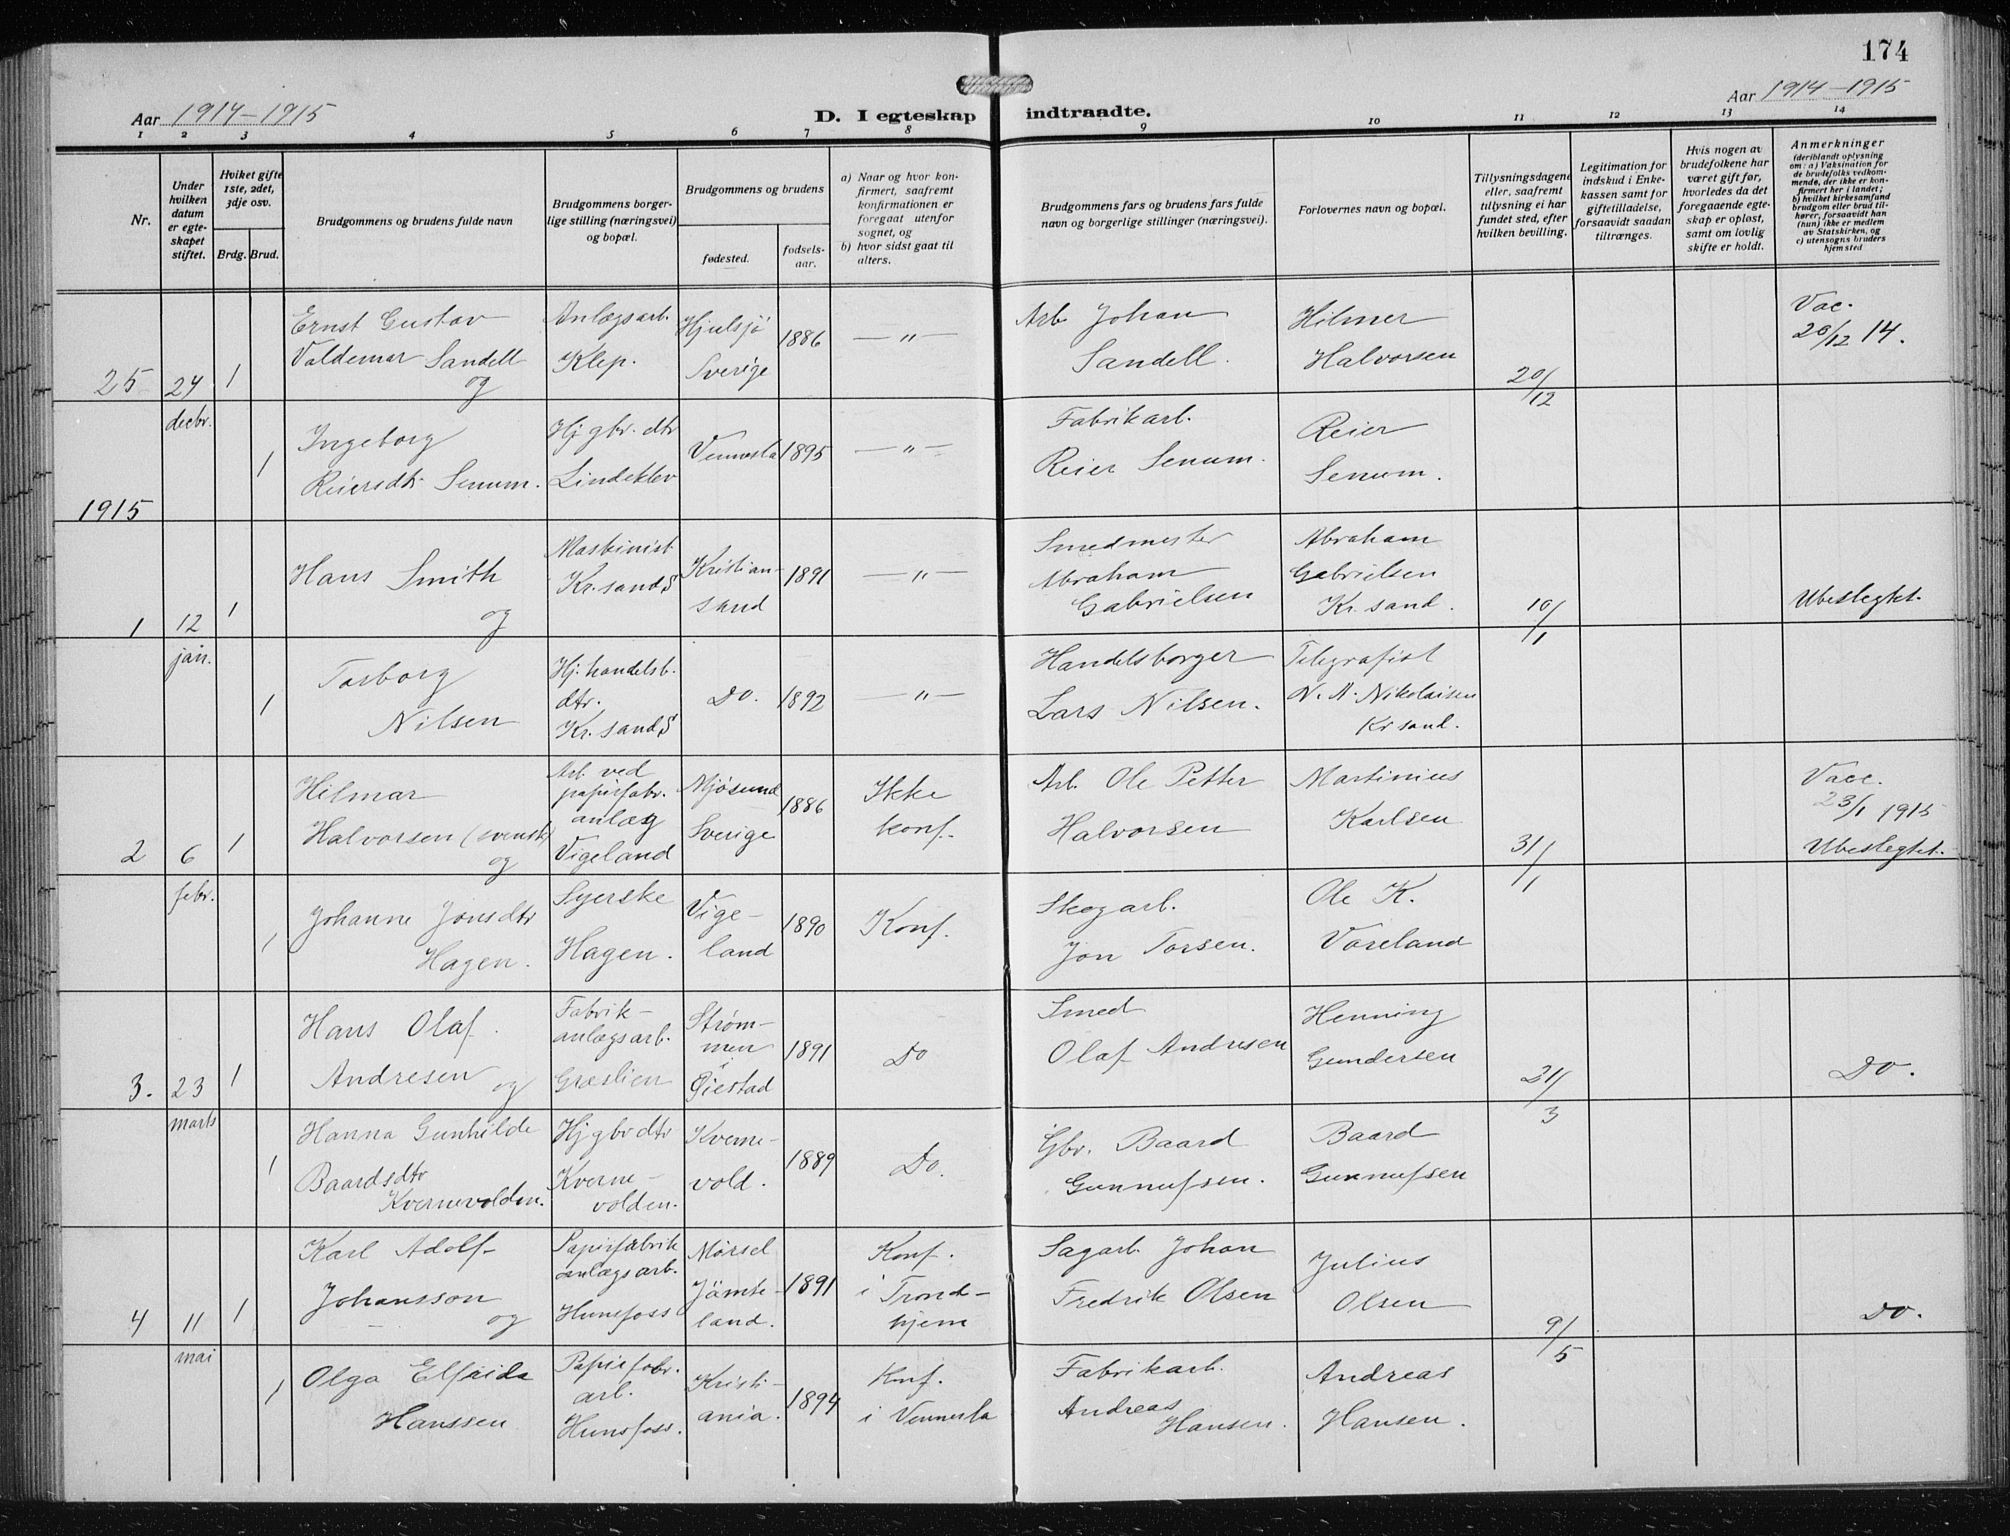 174
Aar 1914-1915
D. I egteskap indtraadte.
Aar 1914-1915
1 2 3 4 5 6 7 8 9 10 11 12 13 14
Nr.
Under hvilken datum er egteskapet stiftet.
Hviket gifte 1ste, 2det, 3dje osv.
Brdg. Brud.
Brudgommens og brudens fulde navn
Brudgommens borgerlige stilling (næringsvei) og bopæl.
Brudgommens og brudens
fødested.
fødselsaar.
a) Naar og hvor konfirmert, saafremt konfirmationen er foregaat utenfor sognet, og
b) hvor sidst gaat til alters.
Brudgommens fars og brudens fars fulde navn og borgerlige stillinger (næringsvei).
Forlovernes navn og bopæl.
Tillysningsdagene eller, saafremt tillysning ei har fundet sted, efter hvilken bevilling.
Legitimation for indskud i Enkekassen samt for giftetilladelse, forsaavidt saadan tiltrænges.
Hvis nogen av brudefolkene har været gift før, hvorledes da det foregaaende egteskap er opløst, samt om lovlig skifte er holdt.
Anmerkninger (deriblandt oplysning om: a) Vaksination for de brudefolks vedkommende, der ikke er konfirmert her i landet; b) hvilket kirkesamfund brudgom eller brud tilhører, forsaavidt han (hun) ikke er medlem av Statskirken, og c) utensogns bruders hjemsted
25 24 1 Ernst Gustav Valdemar Sandell og
Anlægsarb. Klep.
Hjulsjö Sverige
1886
— " —
Arb. Johan Sandell.
Hilmer Halvorsen
20/12
Vac. 20/12 14.
decbr. 1 Ingeborg Reiersdtr Senum.
Hj gbr. dtr Lindeklev
Vennesla
1895
— " —
Fabrikarb. Reier Senum.
Reier Senum.
1915
1 12 1 Hans Smith og
Maskinist Kr.sandS
Kristiansand
1891
— " —
Smedmester Abraham Gabrielsen
Abraham Gabrielsen Kr.sand.
10/1
Ubeslegtet.
jan. 1 Torborg Nilsen
Hj. handelsb. dtr. Kr.sandS
Do.
1892
— " —
Handelsborger Lars Nilsen.
Telegrafist N. A. Nikolaisen Kr sand.
2 6 1 Hilmar Halvorsen (svensk) og
Arb. ved papirfabr. anlæg Vigeland
Sverige
1886
Ikke konf.
Arb. Ole Petter Halvorsen
Martinius Karlsen
31/1
Vacc. 23/1 1915
Ubeslegtet.
febr. 1 Johanne Jonsdtr Hagen.
Syerske Hagen.
Vigeland
1890
Konf.
Skogarb. Jon Torsen.
Ole K. Voreland
3. 23 1 Hans Olaf Andresen og
Fabrikanlægsarb. Græslien
Strømmen i Øiestad
1891
Do
Smed Olaf Andresen
Henning Gundersen
21/3
Do.
marts 1 Hanna Gunhilde Baardsdtr Kvernevolden.
Hj gbr dtr Kvernevolden.
Kvernevold.
1889
Do.
Gbr. Baard Gunnufsen.
Baard Gunnufsen
4 11 1 Karl Adolf Johansson og
Papirfabrik anlægsarb. Hunsfoss
Mørsel Jämteland.
1891
Konf. i Trondhjem
Sagarb. Johan Fredrik Olsen
Julius Olsen
9/5
Do.
mai 1 Olga Elfrida Hanssen
Papirfabr. arb. Hunsfoss.
Kristiania.
1894
Konf. i Vennesla
Fabrikarb. Andreas Hansen.
Andreas Hansen.